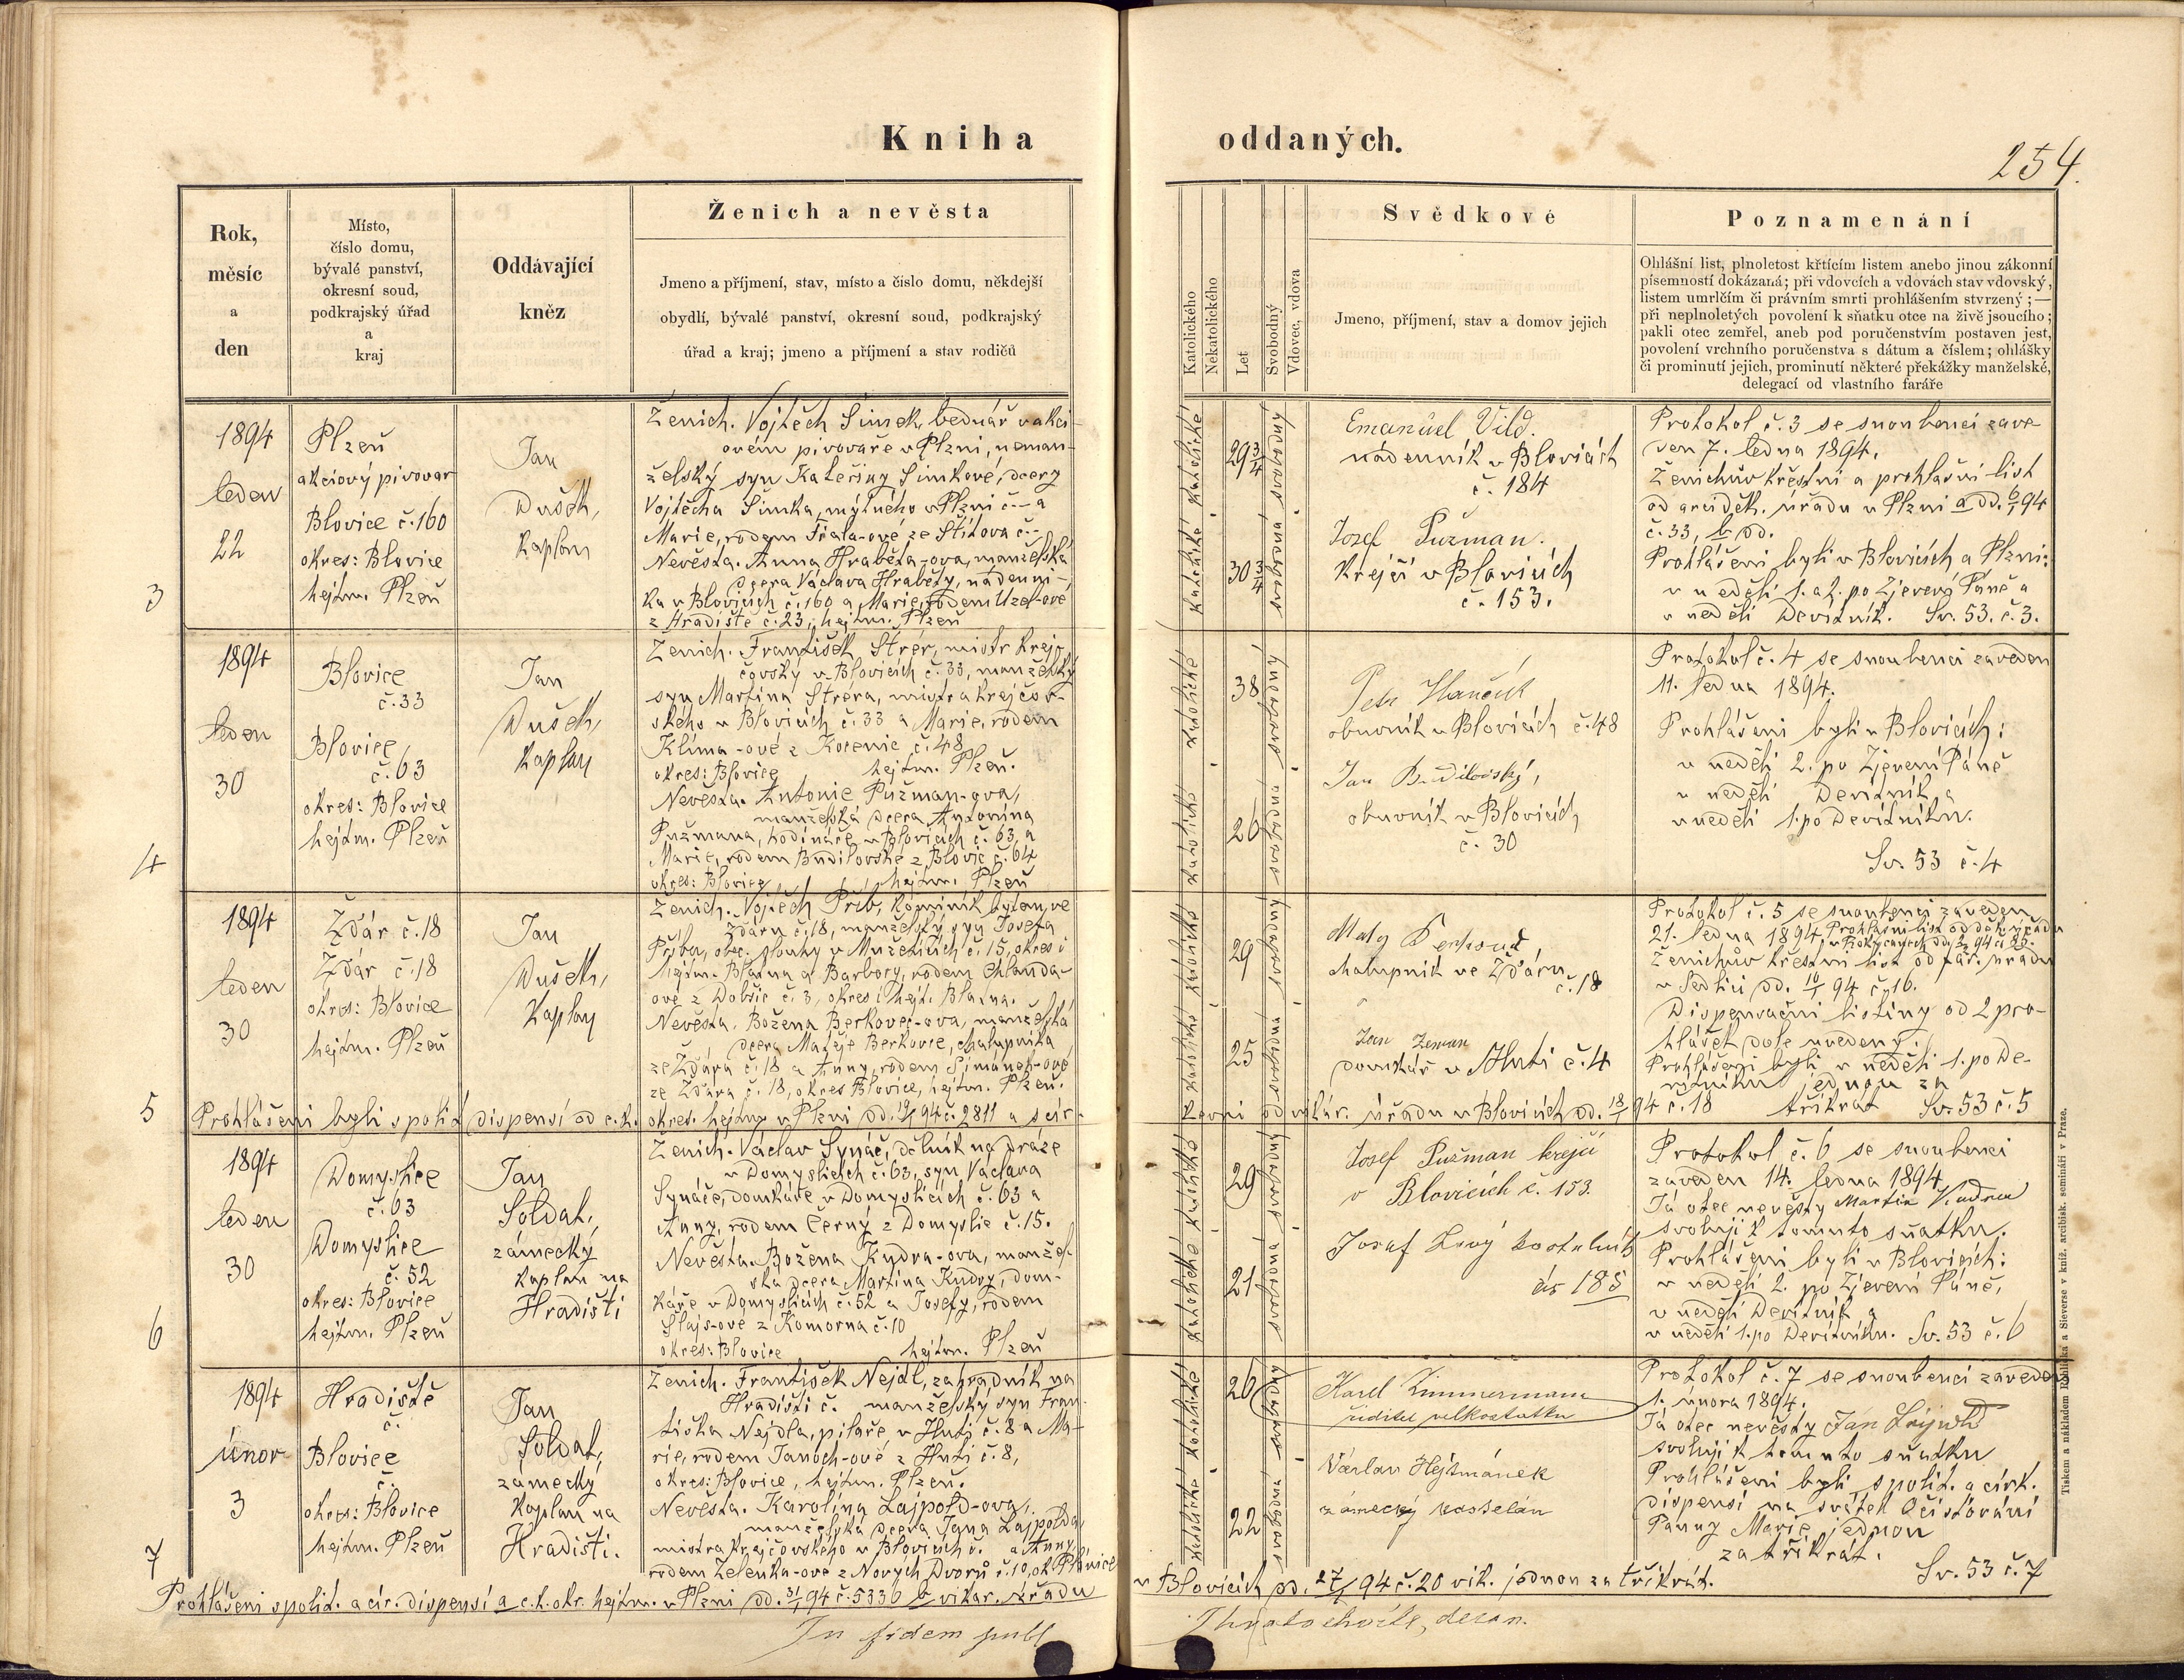 Kniha oddaných.
254.
Rok,
měsíc
a
den
Místo,
číslo domu,
bývalé panství,
okresní soud,
podkrajský úřad
a
kraj
Oddávající
kněz
Ženich a nevěsta
Jmeno a příjmení, stav, místo a číslo domu, někdejší
obydlí, bývalé panství, okresní soud, podkrajský
úřad a kraj; jmeno a příjmení a stav rodičů
Katolického
Nekatolického
Let
Svobodný
Vdovec, vdova
Svědkové
Jmeno, příjmení, stav a domov jejich
Poznamenání
Ohlášní list, plnoletost křtícím listem anebo jinou zákonní
písemností dokázaná; při vdovcích a vdovách stav vdovský,
listem umrlčím či právním smrti prohlášením stvrzený; —
při neplnoletých povolení k sňatku otce na živě jsoucího;
pakli otec zemřel, aneb pod poručenstvím postaven jest,
povolení vrchního poručenstva s dátum a číslem; ohlášky
či prominutí jejich, prominutí některé překážky manželské,
delegací od vlastního faráře
3
1894
leden
22
Plzeň
akciový pivovar
Blovice č. 160
okres: Blovice
hejtm. Plzeň
Jan
Dušek,
Kaplan
Ženich. Vojtěch Šimek, bednář v akci-
ovém pivovaře v Plzni, neman-
želský syn Kateřiny Šimkové, dcery
Vojtěcha Šimka, mýtného v Plzni č - a
Marie, rodem Fiala-ové ze Štítova č -
Nevěsta. Anna Hraběta-ova, manželská
dcera Václava Hraběty, nádenní-
ka v Blovicích č. 160 a Marie, rodem Uzel-ové
z Hradiště č. 23, hejtm. Plzeň
katolické
29 3/4
svobodný
katolické
30 3/4
svobodna
Emanuel Vild.
nádenník v Blovicích
č. 184
Josef Pužman.
Krejčí v Blovicích
č. 153.
Protokol č. 3 se snoubenci zave-
den 7. ledna 1894.
Ženichův křestní a prohlašní list
od arciděk. úřadu v Plzni a dd. 6/1 94
č. 33, b dd.
Prohlášeni byli v Blovicích a Plzni:
v neděli 1. a 2. po Zjevení Páně a
v neděli Devítník. Sv. 53. č. 3.
4
1894
leden
30
Blovice
č. 33
Blovice
č. 63
okres: Blovice
hejtm. Plzeň
Jan
Dušek,
Kaplan
Ženich. František Štrér, mistr krej-
čovský v Blovicích č. 33, manželský
syn Martina Štréra, mistra krejčov-
ského v Blovicích č. 33 a Marie, rodem
Klíma-ové z Kotenic č. 48
okres: Blovice hejtm. Plzeň.
Nevěsta. Antonie Pužman-ova,
manželská dcera Antonína
Pužmana, hodináře v Blovicích č. 63, a
Marie, rodem Budilovské z Blovic č. 64
okres: Blovice hejtm. Plzeň
katolické
38
svobodný
katolické
26
svobodna
Petr
obuvník v Blovicích č. 48
Jan Budilovský,
obuvník v Blovicích
č. 30
Protokol č. 4 se snoubenci zaveden
11. ledna 1894.
Prohlášeni byli v Blovicích:
v neděli 2. po Zjevení Páně
v neděli Devítník a
v neděli 1. po Devítníku.
Sv. 53 č. 4
5
1894
leden
30
Ždár č. 18
Ždár č. 18
okres: Blovice
hejtm. Plzeň
Jan
Dušek,
Kaplan
Ženich. Vojtěch Příb, kominík bytem ve
Ždáru č. 18, manželský syn Josefa
Příba, obec. slouhy v Mužeticích č. 15, okres i
hejtm. Blatna a Barbory, rodem Chlanda-
ové z Dobšic č. 3, okres i hejt. Blatna.
Nevěsta. Božena Berkovec-ova, manželská
dcera Matěje Berkovce, chalupníka
ze Ždára č. 18 a Anny, rodem Šimánek-ové
ze Ždára č. 18, okres Blovice, hejtm. Plzeň.
katolické
29
svobodný
katolické
25
svobodna
Matěj
chalupník ve Žďáru
č. 18
Jan Zeman
domkář v Huti č. 4
Protokol č. 5 se snoubenci zaveden
21. ledna 1894. Prohlašní list od děk. úřadu
v Rokycanech
Ženichův křestní list od far. úřadu
v Sedlici dd. 10/1 94 č. 16.
Dispensační listiny od 2 pro-
hlášek dole uvedeny.
Prohlášeni byli v neděli 1. po De-
vítníku jednou za
třikrát Sv. 53 č. 5
Prohlášeni byli s polit. dispensí od c. k. okres. hejtm. v Plzni dd. 19/1 94 č. 2811 a cír-
kevní od vikár. úřadu v Blovicích dd. 18/1 94 č. 18
6
1894
leden
30
Domyslice
č. 63
Domyslice
č. 52
okres: Blovice
hejtm. Plzeň
Jan
Soldat,
zámecký
kaplan na
Hradišti
Ženich. Václav Synáč, dělník na dráze
v Domyslicích č. 63, syn Václava
Synáče, domkáře v Domyslicích č. 63 a
Anny, rodem Černý z Domyslic č. 15.
Nevěsta. Božena Kydra-ova, manžel-
ská dcera Martina Kudry, dom-
káře v Domyslicích č. 52 a Josefy, rodem
Šlajs-ové z Komorna č. 10
okres: Blovice hejtm. Plzeň
katolické
29
svobodný
katolické
21
svobodna
Josef Pužman krejčí
v Blovicích č. 153.
Josef Levý kostelník
čís 185
Protokol č. 6 se snoubenci
zaveden 14. ledna 1894
Já otec nevěsty Martin Kudra
svoluji k tomuto sňatku.
Prohlášeni byli v Blovicích:
v neděli 2. po Zjevení Páně,
v neděli Devítník a
v neděli 1. po Devítníku. Sv. 53 č. 6
7
1894
únor
3
Hradiště
č.
Blovice
č.
okres: Blovice
hejtm. Plzeň
Jan
Soldat,
zámecký
Kaplan na
Hradišti.
Ženich. František Nejdl, zahradník na
Hradišti č. manželský syn Fran-
tiška Nejdla, pilaře v Huti č. 8 a Ma-
rie, rodem Janoch-ové z Huti č. 8,
okres: Blovice, hejtm. Plzeň.
Nevěsta. Karolina Lajpold-ova,
manželská dcera Jana Lajpolda,
mistra krejčovského v Blovicích č. a Anny,
rodem Zelenka-ové z Nových Dvorů č. 10, ok. Plánice
katolické
26
svobodný
katolické
22
svobodna
Karel Zimmermann
ředitel velkostatku
Václav Hejtmánek
zámecký kastelán
Protokol č. 7 se snoubenci zaveden
1. února 1894.
Já otec nevěsty Jan
svoluji k tomuto sňatku
Prohlášeni byli s polit. a círk.
dispensí na svátek Očisťování
Panny Marie jednou
za třikrát.
Sv. 53 č. 7
Prohlášeni s polit. a cír. dispensí a c. k. okr. hejtm. v Plzni dd. 31/1 94 č. 5336 b vikar. úřadu
v Blovicích dd. 27/1 94 č. 20 vik. jednou za třikrát.
In fidem publ
děkan.
Tiskem a nákladem Rohlíčka a Sieverse v kníž. arcibisk. semináři v Praze.